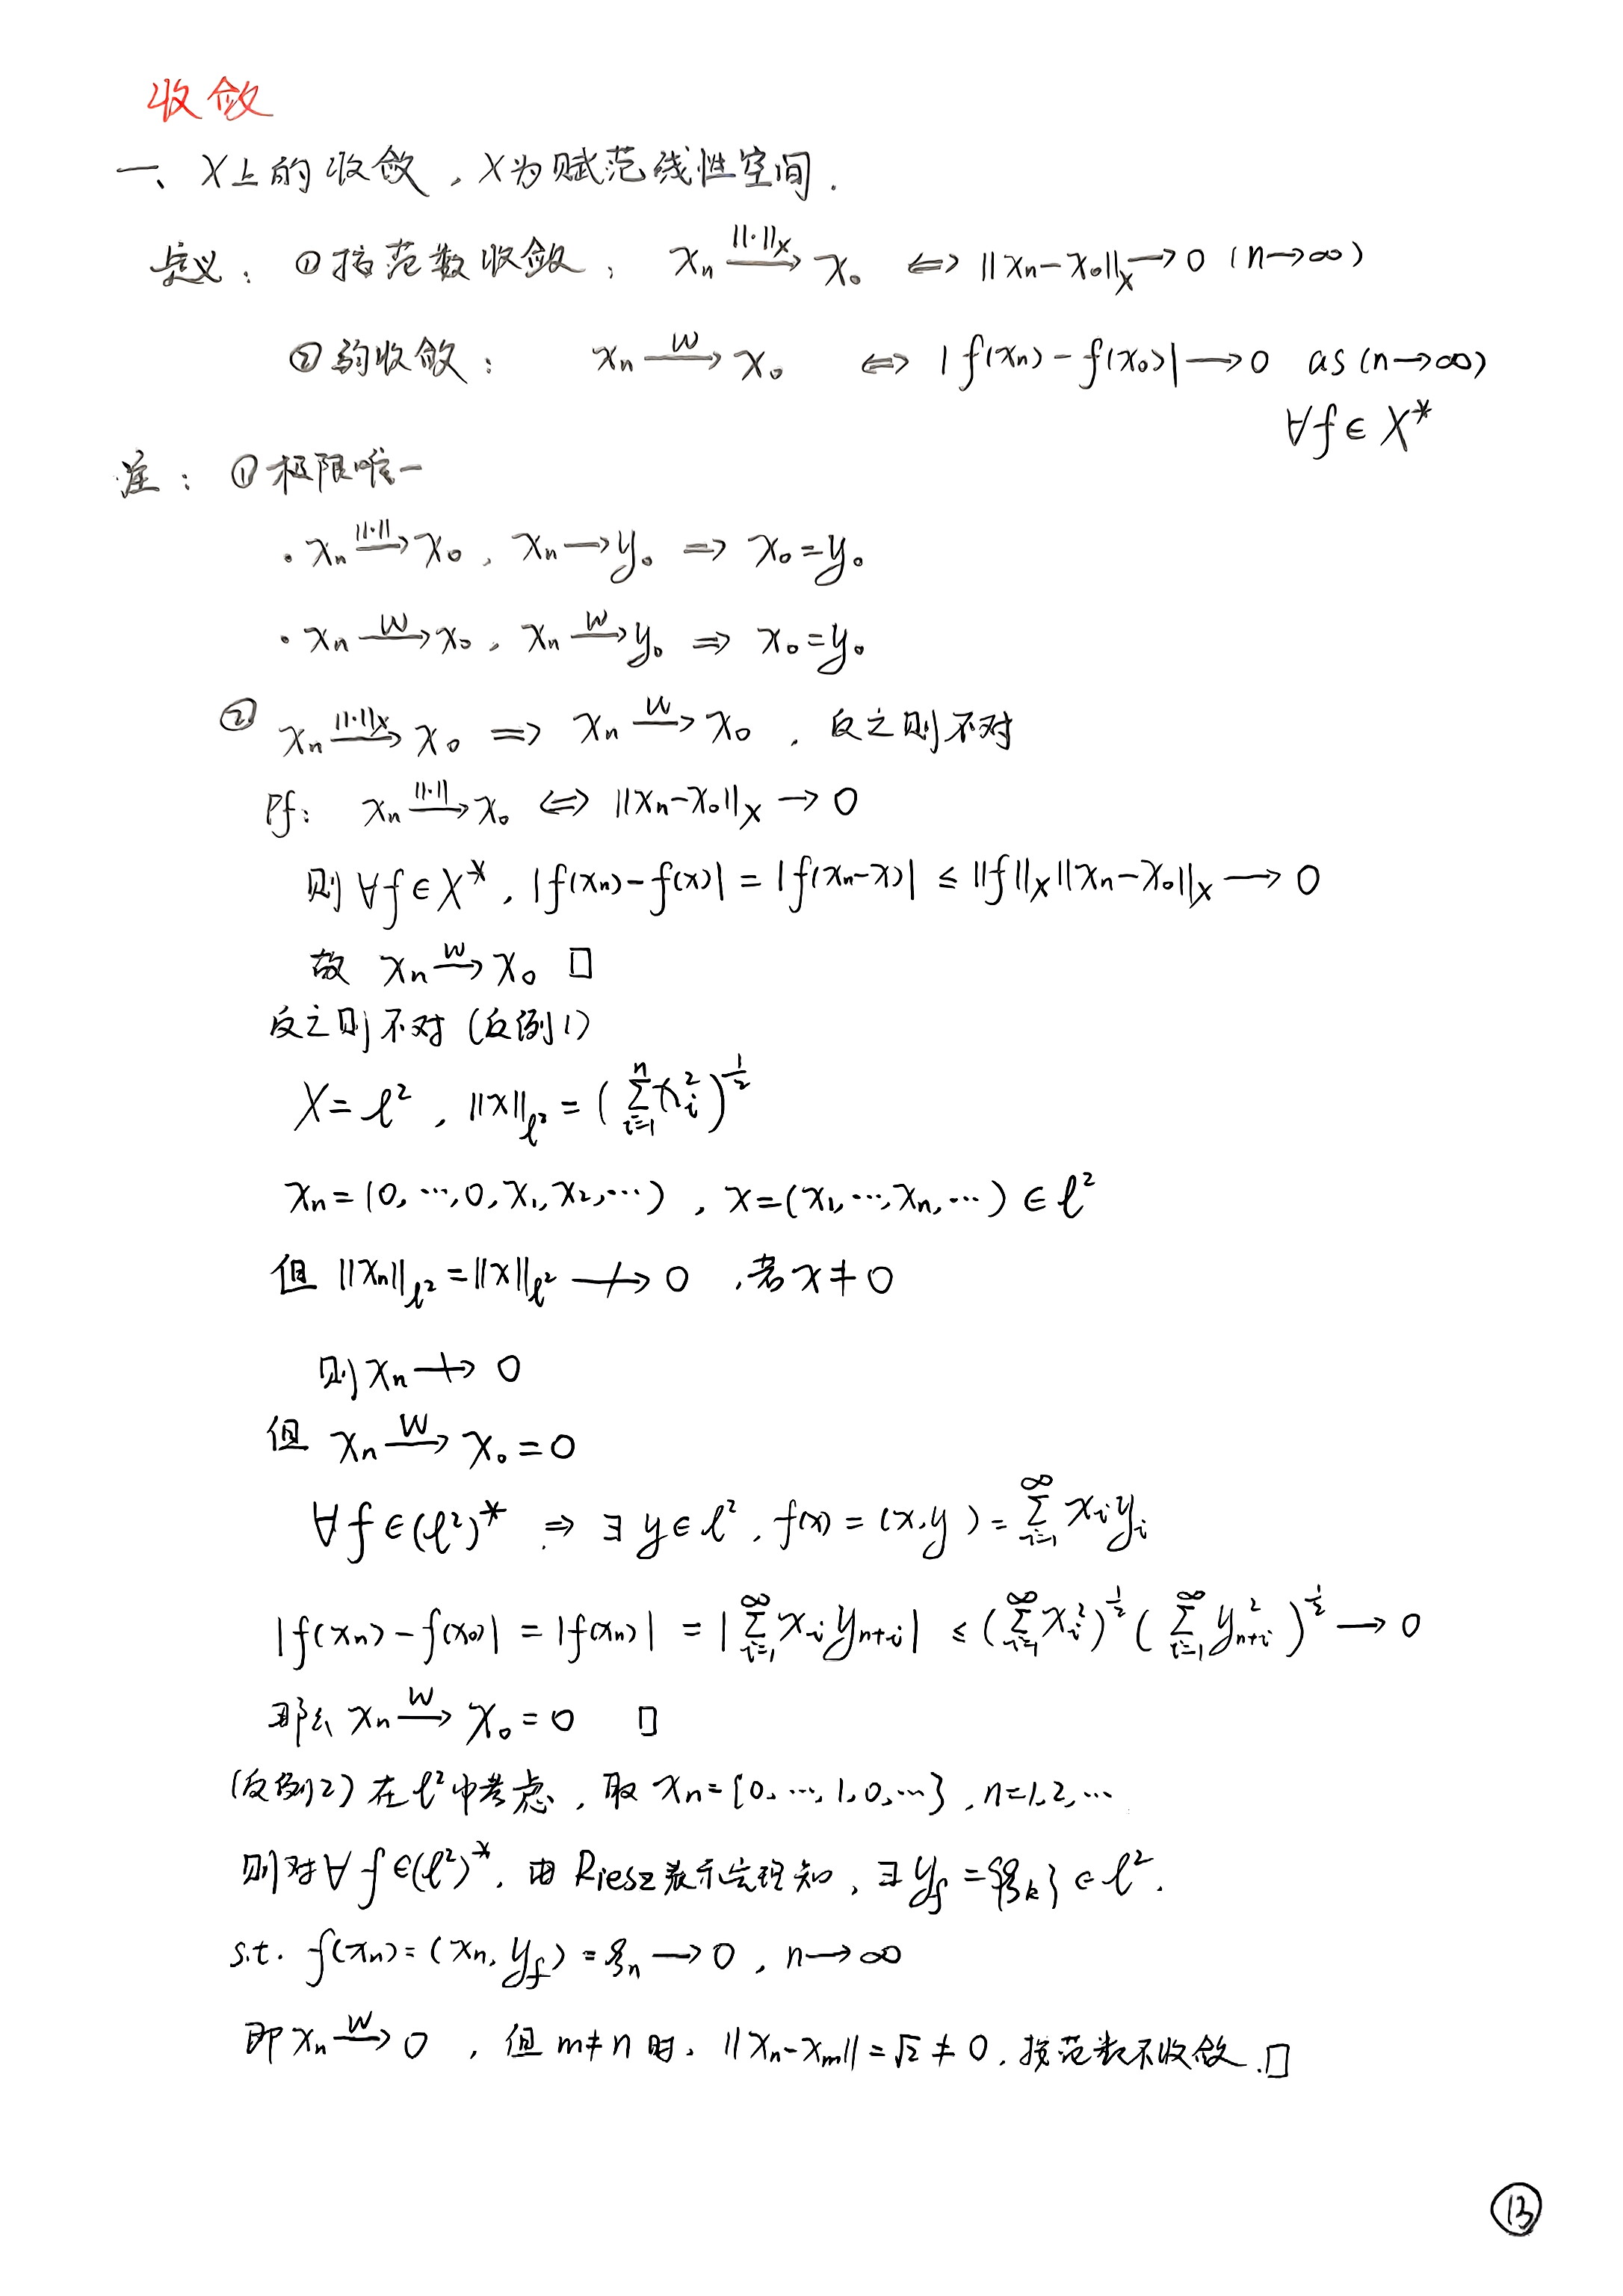 收敛
一、X上的收敛，X为赋范线性空间.
定义：①按范数收敛： xₙ —‖·‖_X→ x₀ ⟺ ‖xₙ-x₀‖_X → 0 (n→∞)
②弱收敛： xₙ —W→ x₀ ⟺ |f(xₙ)-f(x₀)| → 0 as (n→∞)
∀f∈X*
注：①极限唯一
· xₙ —‖·‖→ x₀, xₙ → y₀ ⇒ x₀=y₀
· xₙ —W→ x₀, xₙ —W→ y₀ ⇒ x₀=y₀
② xₙ —‖·‖_X→ x₀ ⇒ xₙ —W→ x₀, 反之则不对
Pf: xₙ —‖·‖→ x₀ ⟺ ‖xₙ-x₀‖_X → 0
则∀f∈X*, |f(xₙ)-f(x)| = |f(xₙ-x)| ≤ ‖f‖_X‖xₙ-x₀‖_X → 0
故 xₙ —W→ x₀ □
反之则不对 (反例1)
X=ℓ², ‖x‖_{ℓ²} = (∑_{i=1}^{n} x_i²)^{1/2}
xₙ=(0,…,0,x₁,x₂,…), x=(x₁,…,xₙ,…)∈ℓ²
但 ‖xₙ‖_{ℓ²}=‖x‖_{ℓ²} ↛ 0 ,若x≠0
则xₙ ↛ 0
但 xₙ —W→ x₀=0
∀f∈(ℓ²)* ⇒ ∃y∈ℓ², f(x)=(x,y)=∑_{i=1}^{∞} x_i y_i
|f(xₙ)-f(x₀)| = |f(xₙ)| = |∑_{i=1}^{∞} x_i y_{n+i}| ≤ (∑_{i=1}^{∞} x_i²)^{1/2} (∑_{i=1}^{∞} y_{n+i}²)^{1/2} → 0
那么 xₙ —W→ x₀=0 □
(反例2) 在ℓ²中考虑, 取 xₙ={0,…,1,0,…}, n=1,2,…
则对∀f∈(ℓ²)*, 由Riesz表示定理知, ∃y_f={ξ_k}∈ℓ².
s.t. f(xₙ)=(xₙ,y_f)=ξₙ → 0, n→∞
即 xₙ —W→ 0 , 但m≠n时, ‖xₙ-x_m‖=√2≠0, 按范数不收敛.□
⑬